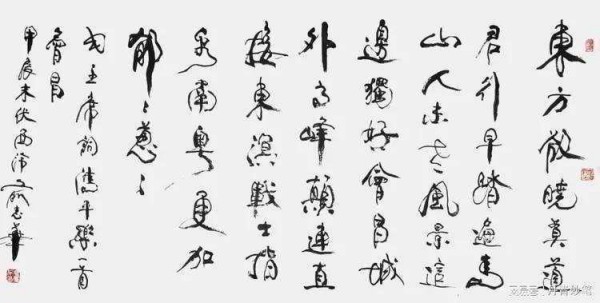 東方欲曉莫道
君行早踏遍青
山人未老風景這
邊獨好會昌城
外高峰顛連直
接東溟戰士指
看南粵更加
郁〻蔥〻
毛主席詞清平樂一首
會昌
甲辰末伏